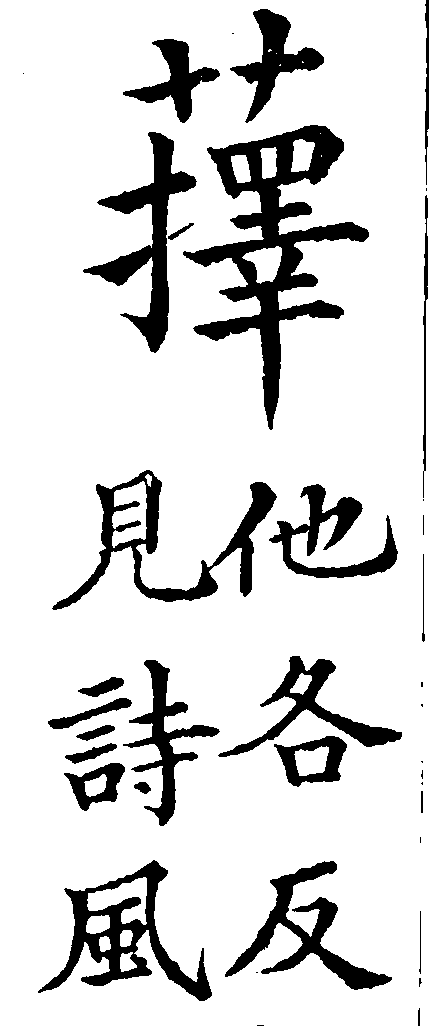 蘀
他各反
見詩風